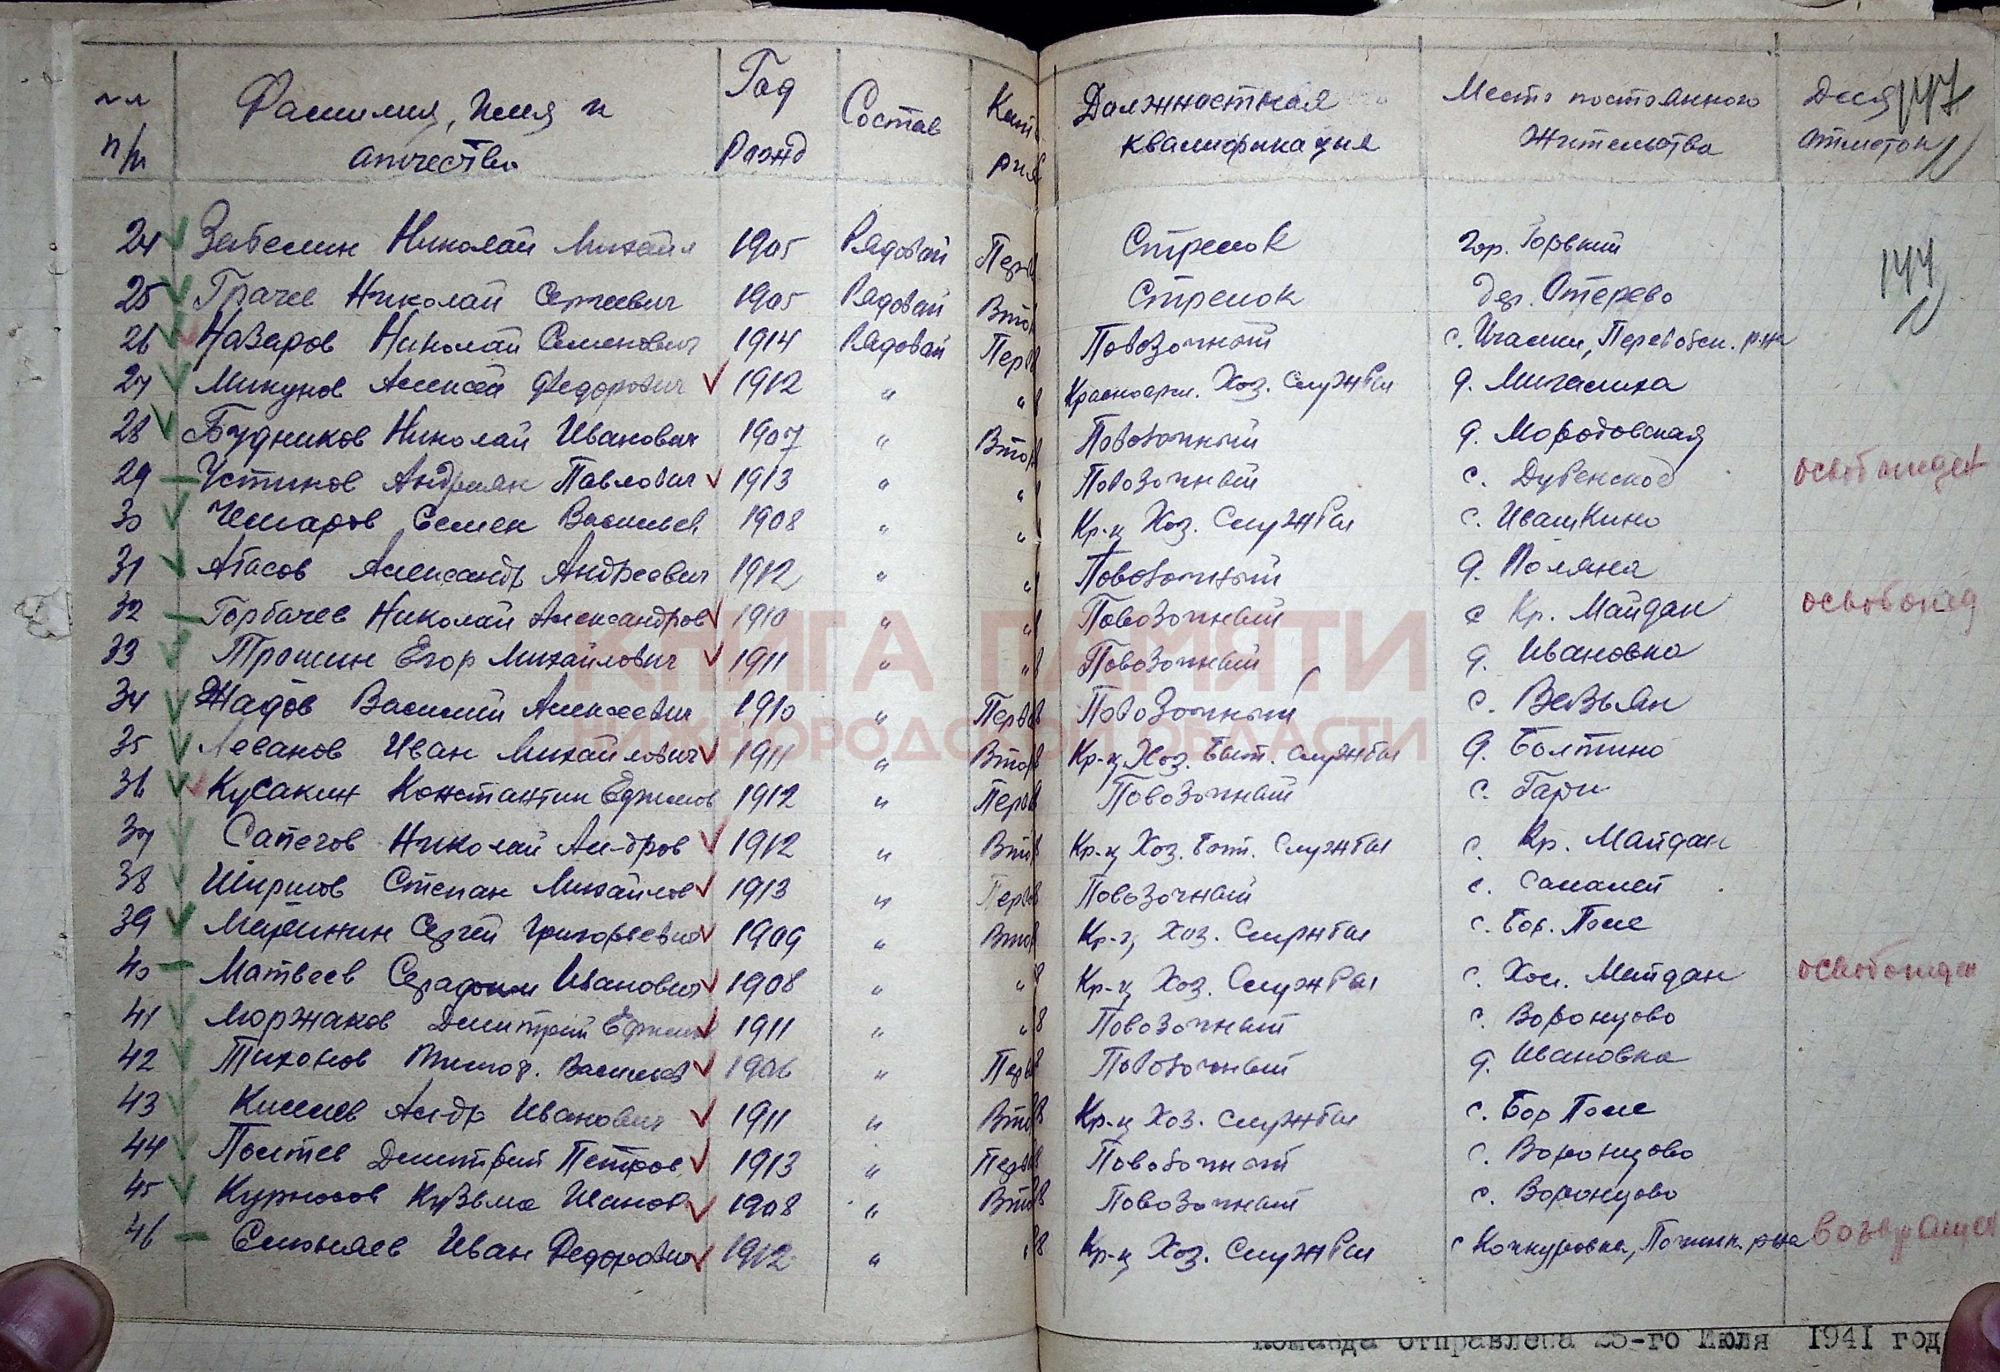 №№ п/п Фамилия, Имя и отчество Год рожд Состав Кате рия Должностная квалификация Место постоянного жительства Для отметок
147
144
24 Забелин Николай Михайл 1905 Рядовой Перв Стрелок гор. Горький
25 Грачев Николай Сергеевич 1905 Рядовой Втор Стрелок дер. Отерево
26 Назаров Николай Семенович 1914 Рядовой Перв Повозочный с. Ичалки, Перевозск. р-на
27 Микунов Алексей Федорович 1912 " " Красноарм. Хоз. Службы д. Мигалиха
28 Будников Николай Иванович 1907 " Втор Повозочный д. Мородовская
29 Устинов Андриян Павлович 1913 " " Повозочный с. Дубенское освобожден
30 Чекмаров Семен Васильев 1908 " " Кр-ц Хоз. Службы с. Ивашкино
31 Атасов Александр Андреевич 1912 " " Повозочный д. Поляна
32 Горбачев Николай Александров 1910 " " Повозочный с Кр. Майдан освобожд
33 Трошин Егор Михайлович 1911 " " Повозочный д. Ивановка
34 Жадов Василий Алексеевич 1910 " Перв Повозочный с. Вязьян
35 Леванов Иван Михайлович 1911 " Втор Кр-ц Хоз. Быт. службы д. Болтино
36 Кусакин Константин Ефимов 1912 " Перв Повозочный с. Гари
37 Сапегов Николай Ал-дров 1912 " Втор Кр-ц Хоз. Быт. Службы с. Кр. Майдан
38 Ширшов Степан Михайлов 1913 " Перв Повозочный с. Саманей
39 Сергей Григорьевич 1909 " Втор Кр-ц Хоз. Службы с. Бор. Поле
40 Матвеев Серафим Иванович 1908 " " Кр-ц Хоз. Службы с. Хол. Майдан освобожден
41 Моржаков Дмитрий Ефимов 1911 " " Повозочный с. Воронцово
42 Тихонов Тимоф. Васильев 1906 " Перв Повозочный д. Ивановка
43 Киселев Ал-др Иванович 1911 " Втор Кр-ц Хоз. службы с. Бор Поле
44 Полтев Дмитрий Петров 1913 " Перв Повозочный с. Воронцово
45 Курносов Кузьма Иванов 1908 " Втор Повозочный с. Воронцово
46 Симоняев Иван Федорович 1912 " " Кр-ц Хоз. Службы с Кочкуровка, Починк. р-на возвращен
КНИГА ПАМЯТИ
НИЖЕГОРОДСКОЙ ОБЛАСТИ
Команда отправлена 25-го Июля 1941 год